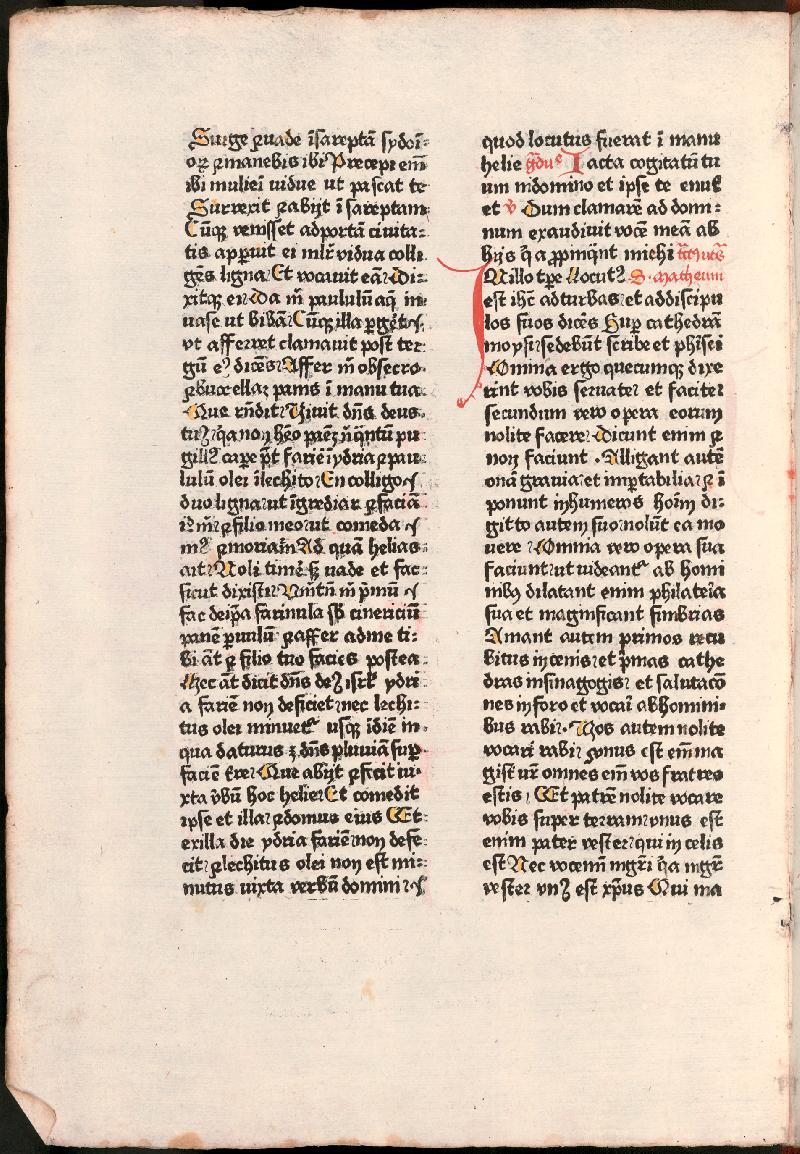 Surge ⁊uade ĩsareptã sydoĩ⸗
oꝝ ⁊manebis ibi Precepi em̃
ibi muliei uidue ut pascat te
Surrexit ⁊abijt ĩ sareptam
Cũq̃ venisset adportã ciuita⸗
tis apparuit ei ml̃r vidua colli
gẽs ligna Et vocauit eã Di⸗
xitq̃ ei Da m̃ paululũ aq̃ in
uase ut bibã Cũq̃ illa ꝑgẽt
vt afferret clamauit post ter
gũ eꝰ dicẽs Affer m̃ obsecro
⁊buccellaꝫ panis ĩ manu tua
Que rñdit Viuit dñs deus
tuꝰ qa non hẽo panẽ n̄ q̃ntũ pu
gillꝰ cape põt farĩe ĩ ydria ⁊pau
lulũ olei ĩlechito En colligo
duo ligna ut ĩgrediar ⁊faciã
m̃ ⁊filio meo ut comeda
mꝰ ⁊moriam̃ Ad quã helias
ait Noli timẽ sꝫ uade et fac
sicut dixisti m̃ pⁱmũ
fac deip̃a farinula sb̃ cinericiũ
panẽ ꝑuulũ ⁊affer adme ti⸗
bi aũt ⁊ filio tuo facies postea
Hec aũt dicit dñs deꝰ isrl̃ ydri
a farĩe non deficiet nec lechi⸗
tus olei minuetᷣ usq̃ ĩdiẽ in
qua daturus ẽ dñs pluuiã suꝑ
faciẽ tr̃e Que abijt ⁊fecit iu⸗
xta v̾bũ hoc helie Et comedit
ipse et illa ⁊domus eius Et⸗
exilla die ydria farĩe non defe⸗
cit ⁊lechitus olei non est mi⸗
nutus iuxta verbũ domini
quod locutus fuerat ĩ manu
helie gˢduᵉ Iacta cogitatũ tu
um indomino et ipse te enut̃
et v̾ Dum clamarẽ ad domi⸗
num exaudiuit vocẽ meã ab
hijs q̃ appropinq̃nt michi
N illo tꝑe Locutꝰ S. Matheum
est ih̃c adturbas et addiscipu
los suos dicẽs Suꝑ cathedrã
moysi sedebũt scribe et ph̃isei
Omnia ergo quecumq̃ dixe
rint vobis seruate et facite
secundum vero opera eorum
nolite facere Dicunt enim ⁊
non faciunt Alligant autẽ
onã grauia et inportabilia ⁊ ĩ
ponunt inhumeros hoĩm di⸗
gitto autem suo nolũt ea mo
uere Omnia vero opera sua
faciunt ut uideantᷣ ab homi
nibꝰ dilatant enim philateria
sua et magnificant fimbrias
Amant autem primos recu
bitus in cenis et pⁱmas cathe
dras insinagogis et salutacõ
nes inforo et vocari abhomini⸗
bus rabi Vos autem nolite
vocari rabi ⁊onus est em̃ ma
gist̃ ur̃ omnes em̃ vos fratres
estis Et patrẽ nolite vocare
vobis super terram vnus est
enim pater vester qui in celis
est Nec vocemi mgr̃i q̃a mgr̃
vester vnꝰ est xp̃us Qui ma